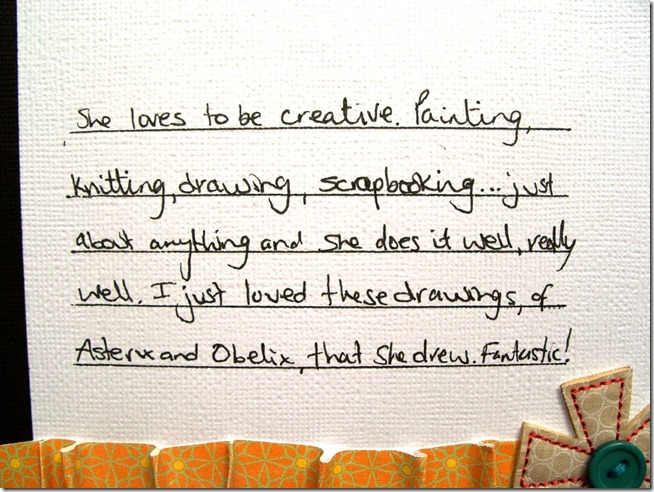 She loves to be creative. Painting,
knitting, drawing, scrapbooking... just
about anything and she does it well, really
well. I just loved these drawings, of
Asterix and Obelix, that she drew. Fantastic!